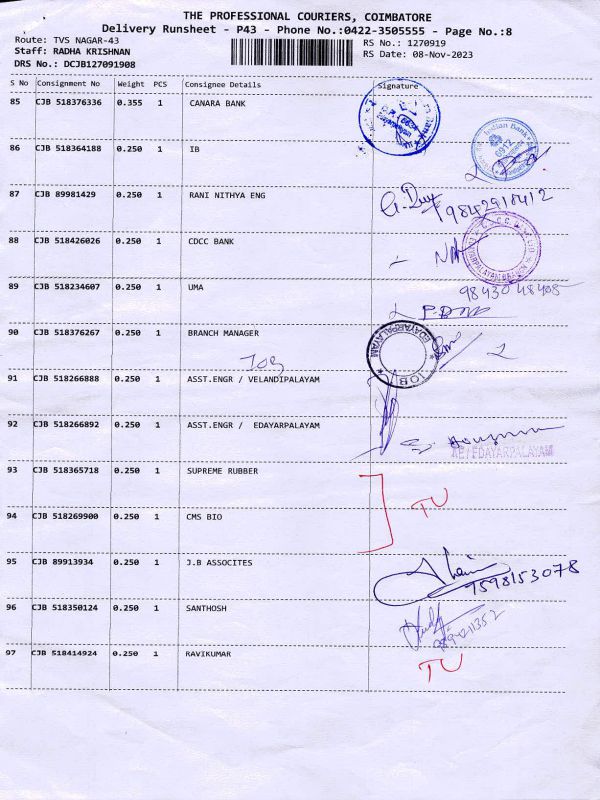 THE PROFESSIONAL COURIERS, COIMBATORE
Delivery Runsheet - P43 - Phone No.:0422-3505555 - Page No.:8
Route: TVS NAGAR-43 RS No.: 1270919
Staff: RADHA KRISHNAN RS Date: 08-Nov-2023
DRS No.: DCJB127091908
S No Consignment No Weight PCS Consignee Details Signature
85 CJB 518376336 0.355 1 CANARA BANK
86 CJB 518364188 0.250 1 IB
Indian Bank
6912
87 CJB 89981429 0.250 1 RANI NITHYA ENG
9842918412
88 CJB 518426026 0.250 1 CDCC BANK
89 CJB 518234607 0.250 1 UMA
9843048405
90 CJB 518376267 0.250 1 BRANCH MANAGER
EDAYARPALAYAM
IOB
IOB
91 CJB 518266888 0.250 1 ASST.ENGR / VELANDIPALAYAM
92 CJB 518266892 0.250 1 ASST.ENGR / EDAYARPALAYAM
AE/EDAYARPALAYAM
93 CJB 518365718 0.250 1 SUPREME RUBBER
TU
94 CJB 518269900 0.250 1 CMS BIO
95 CJB 89913934 0.250 1 J.B ASSOCITES
9598153078
96 CJB 518350124 0.250 1 SANTHOSH
97 CJB 518414924 0.250 1 RAVIKUMAR
TU